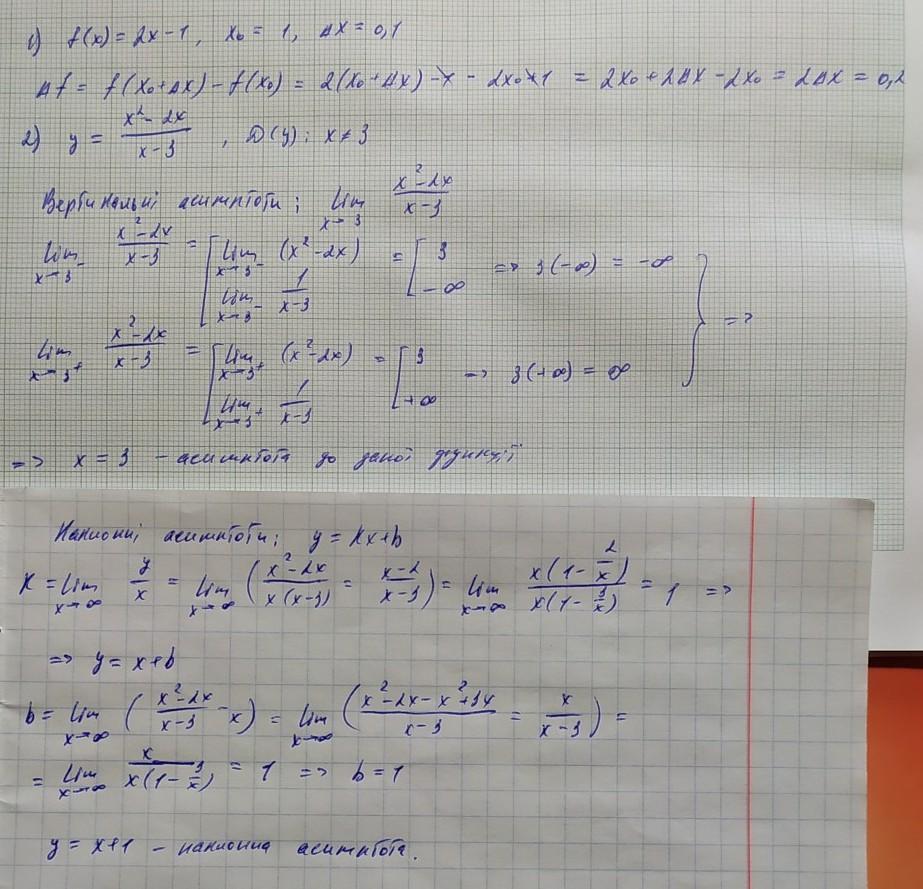 1) f(x) = 2x - 1, x₀ = 1, Δx = 0,1
Δf = f(x₀+Δx) - f(x₀) = 2(x₀+Δx) - 1 - 2x₀ + 1 = 2x₀ + 2Δx - 2x₀ = 2Δx = 0,2
2) y = (x² - 2x)/(x - 3), D(y): x ≠ 3
Вертикальні асимптоти: lim x→3 (x² - 2x)/(x - 3)
lim x→3⁻ (x² - 2x)/(x - 3) = [ lim x→3⁻ (x² - 2x) ; lim x→3⁻ 1/(x - 3) = [ 3 ; -∞ => 3(-∞) = -∞ } =>
lim x→3⁺ (x² - 2x)/(x - 3) = [ lim x→3⁺ (x² - 2x) ; lim x→3⁺ 1/(x - 3) = [ 3 ; +∞ => 3(+∞) = ∞
=> x = 3 - асимптота до даної функції
Наклонні асимптоти: y = kx + b
k = lim x→∞ y/x = lim x→∞ ((x² - 2x)/(x(x - 3)) = (x - 2)/(x - 3)) = lim x→∞ x(1 - 2/x)/x(1 - 3/x) = 1 =>
=> y = x + b
b = lim x→∞ ((x² - 2x)/(x - 3) - x) = lim x→∞ ((x² - 2x - x² + 3x)/(x - 3) = x/(x - 3)) =
= lim x→∞ x/x(1 - 3/x) = 1 => b = 1
y = x + 1 - наклонна асимптота.